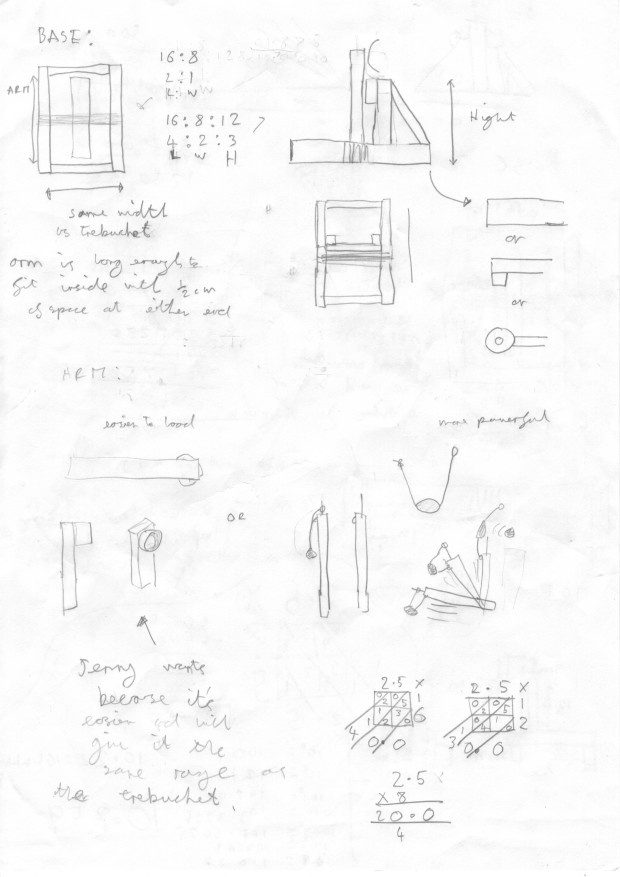 BASE:
16:8
2:1
L:W
16:8:12
4:2:3
L W H
ARM
Hight
same width
as trebuchet
arm is long enough to
fit inside with ½cm
of space at either end
or
or
ARM:
easier to load
more powerful
OR
Jenny wants
because it's
easier and will
give it the
same range as
the trebuchet.
2.5 x
1
6
4 0.0
2.5 x
1
2
3 0.0
2.5 x
x 8
20.0
4